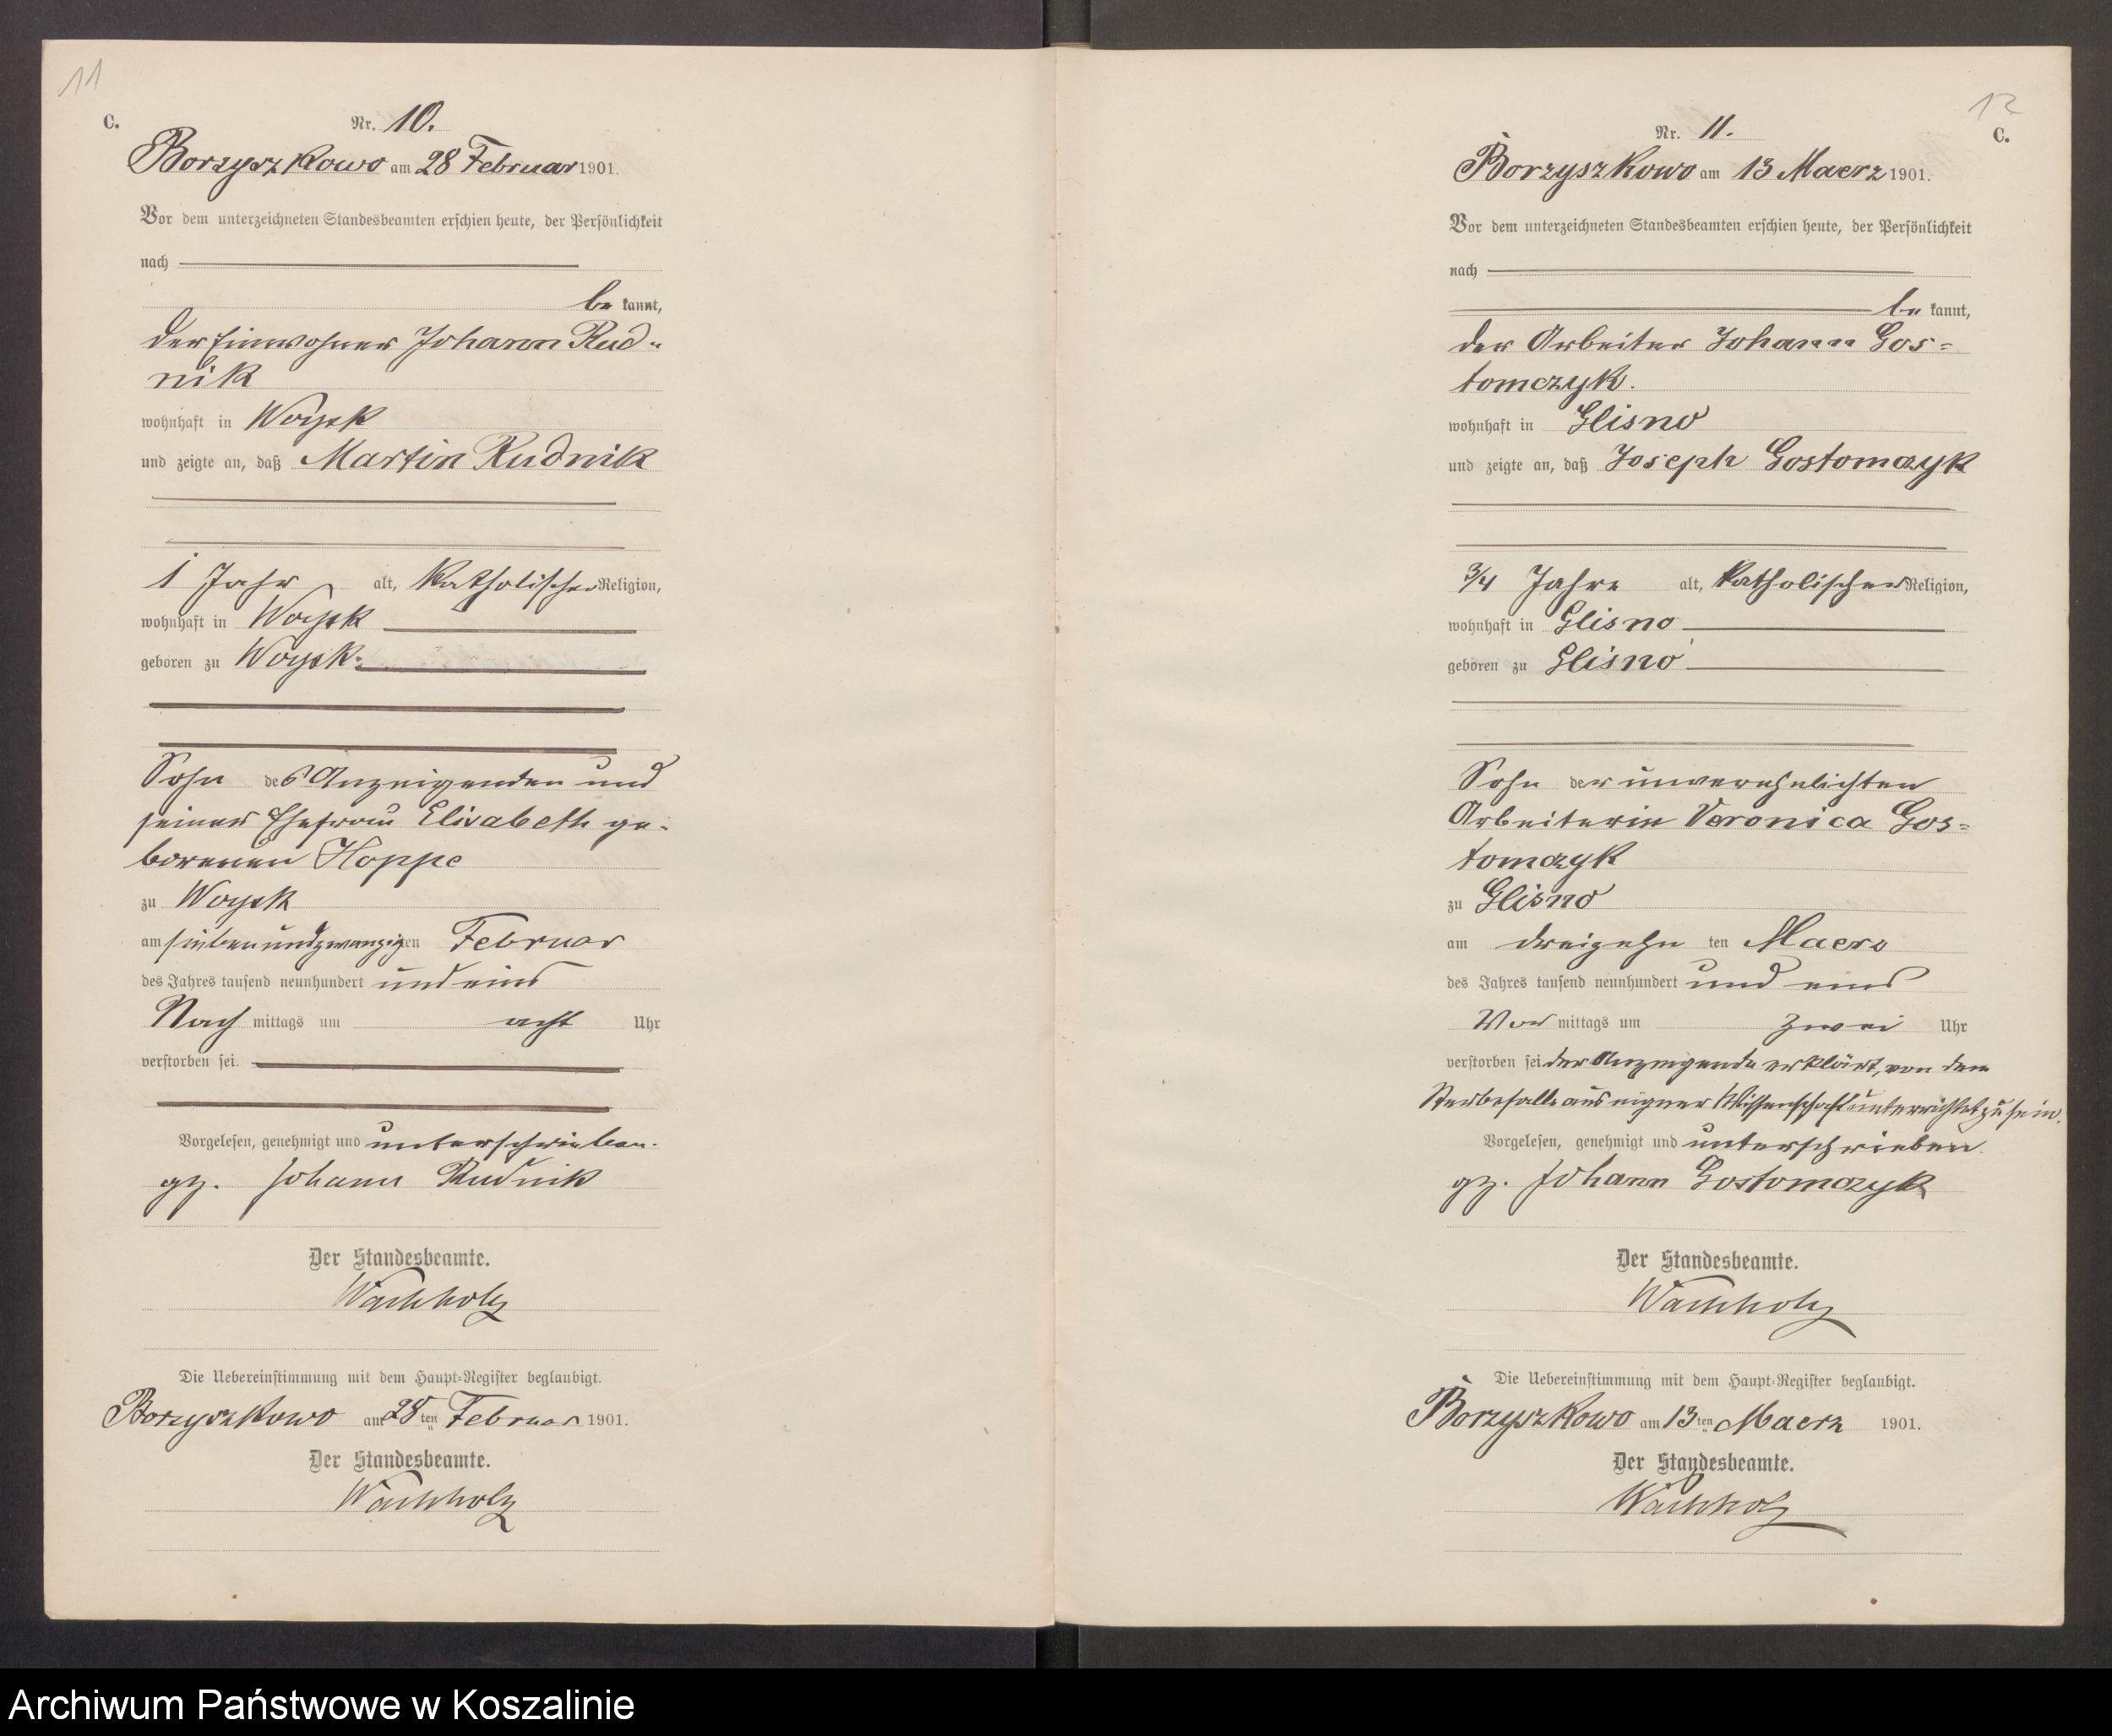 11
C.
Nr. 10.
Borzyszkowo am 28 Februar 1901.
Vor dem unterzeichneten Standesbeamten erschien heute, der Persönlichkeit
nach
be kannt,
der Einwohner Johann Rud-
nik
wohnhaft in Woysk
und zeigte an, daß Martin Rudnik
1 Jahr alt, katholischer Religion,
wohnhaft in Woysk
geboren zu Woysk
Sohn des Anzeigenden und
seiner Ehefrau Elisabeth ge-
borenen Hoppe
zu Woysk
am siebenundzwanzigten Februar
des Jahres tausend neunhundert und eins
Nach mittags um acht Uhr
verstorben sei.
Vorgelesen, genehmigt und unterschrieben.
gz. Johann Rudnik
Der Standesbeamte.
Wachholz
Die Uebereinstimmung mit dem Haupt-Register beglaubigt.
Borzyszkowo am 28 ten Februar 1901.
Der Standesbeamte.
Wachholz
12
C.
Nr. 11.
Borzyszkowo am 13 Maerz 1901.
Vor dem unterzeichneten Standesbeamten erschien heute, der Persönlichkeit
nach
be kannt,
der Arbeiter Johann Gos=
tomczyk.
wohnhaft in Glisno
und zeigte an, daß Joseph Gostomczyk
3/4 Jahre alt, katholischer Religion,
wohnhaft in Glisno
geboren zu Glisno
Sohn der unverehelichten
Arbeiterin Veronica Gos=
tomczyk
zu Glisno
am dreizehn ten Maerz
des Jahres tausend neunhundert und eins
Vor mittags um zwei Uhr
verstorben sei. der Anzeigende erklärt, von dem
Sterbefalle aus eigner Wissenschaft unterrichtet zu sein.
Vorgelesen, genehmigt und unterschrieben.
gz. Johann Gostomczyk
Der Standesbeamte.
Wachholz
Die Uebereinstimmung mit dem Haupt-Register beglaubigt.
Borzyszkowo am 13 ten Maerz 1901.
Der Standesbeamte.
Wachholz
Archiwum Państwowe w Koszalinie